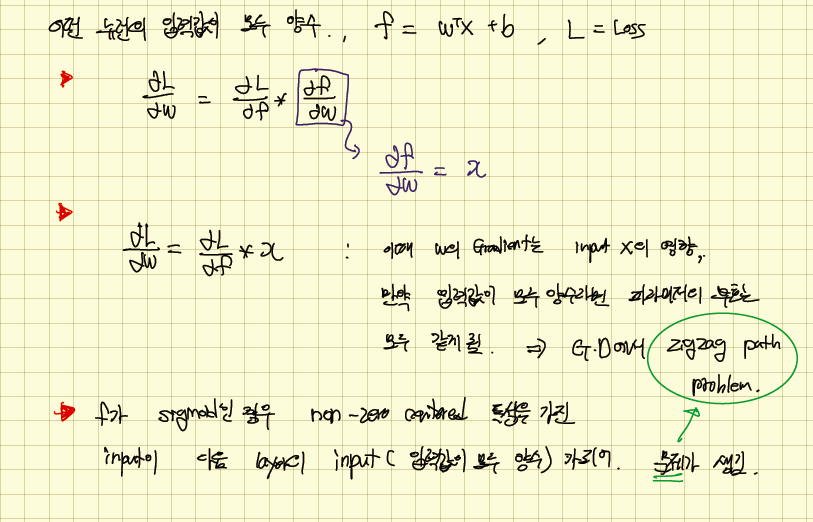 어떤 뉴런의 입력값이 모두 양수.., f = wᵀx + b , L = Loss
∂L/∂w = ∂L/∂f * ∂f/∂w
∂f/∂w = x
∂L/∂w = ∂L/∂f * x : 이때 w의 Gradient는 input X의 영향,
만약 입력값이 모두 양수라면 파라미터의 부호는
모두 같게 됨. ⇒ G.D에서 zigzag path
problem.
f가 sigmoid인 경우 non-zero centered 특성을 가진
input이 다음 layer에 input ( 입력값이 모두 양수) 문제가 생김.